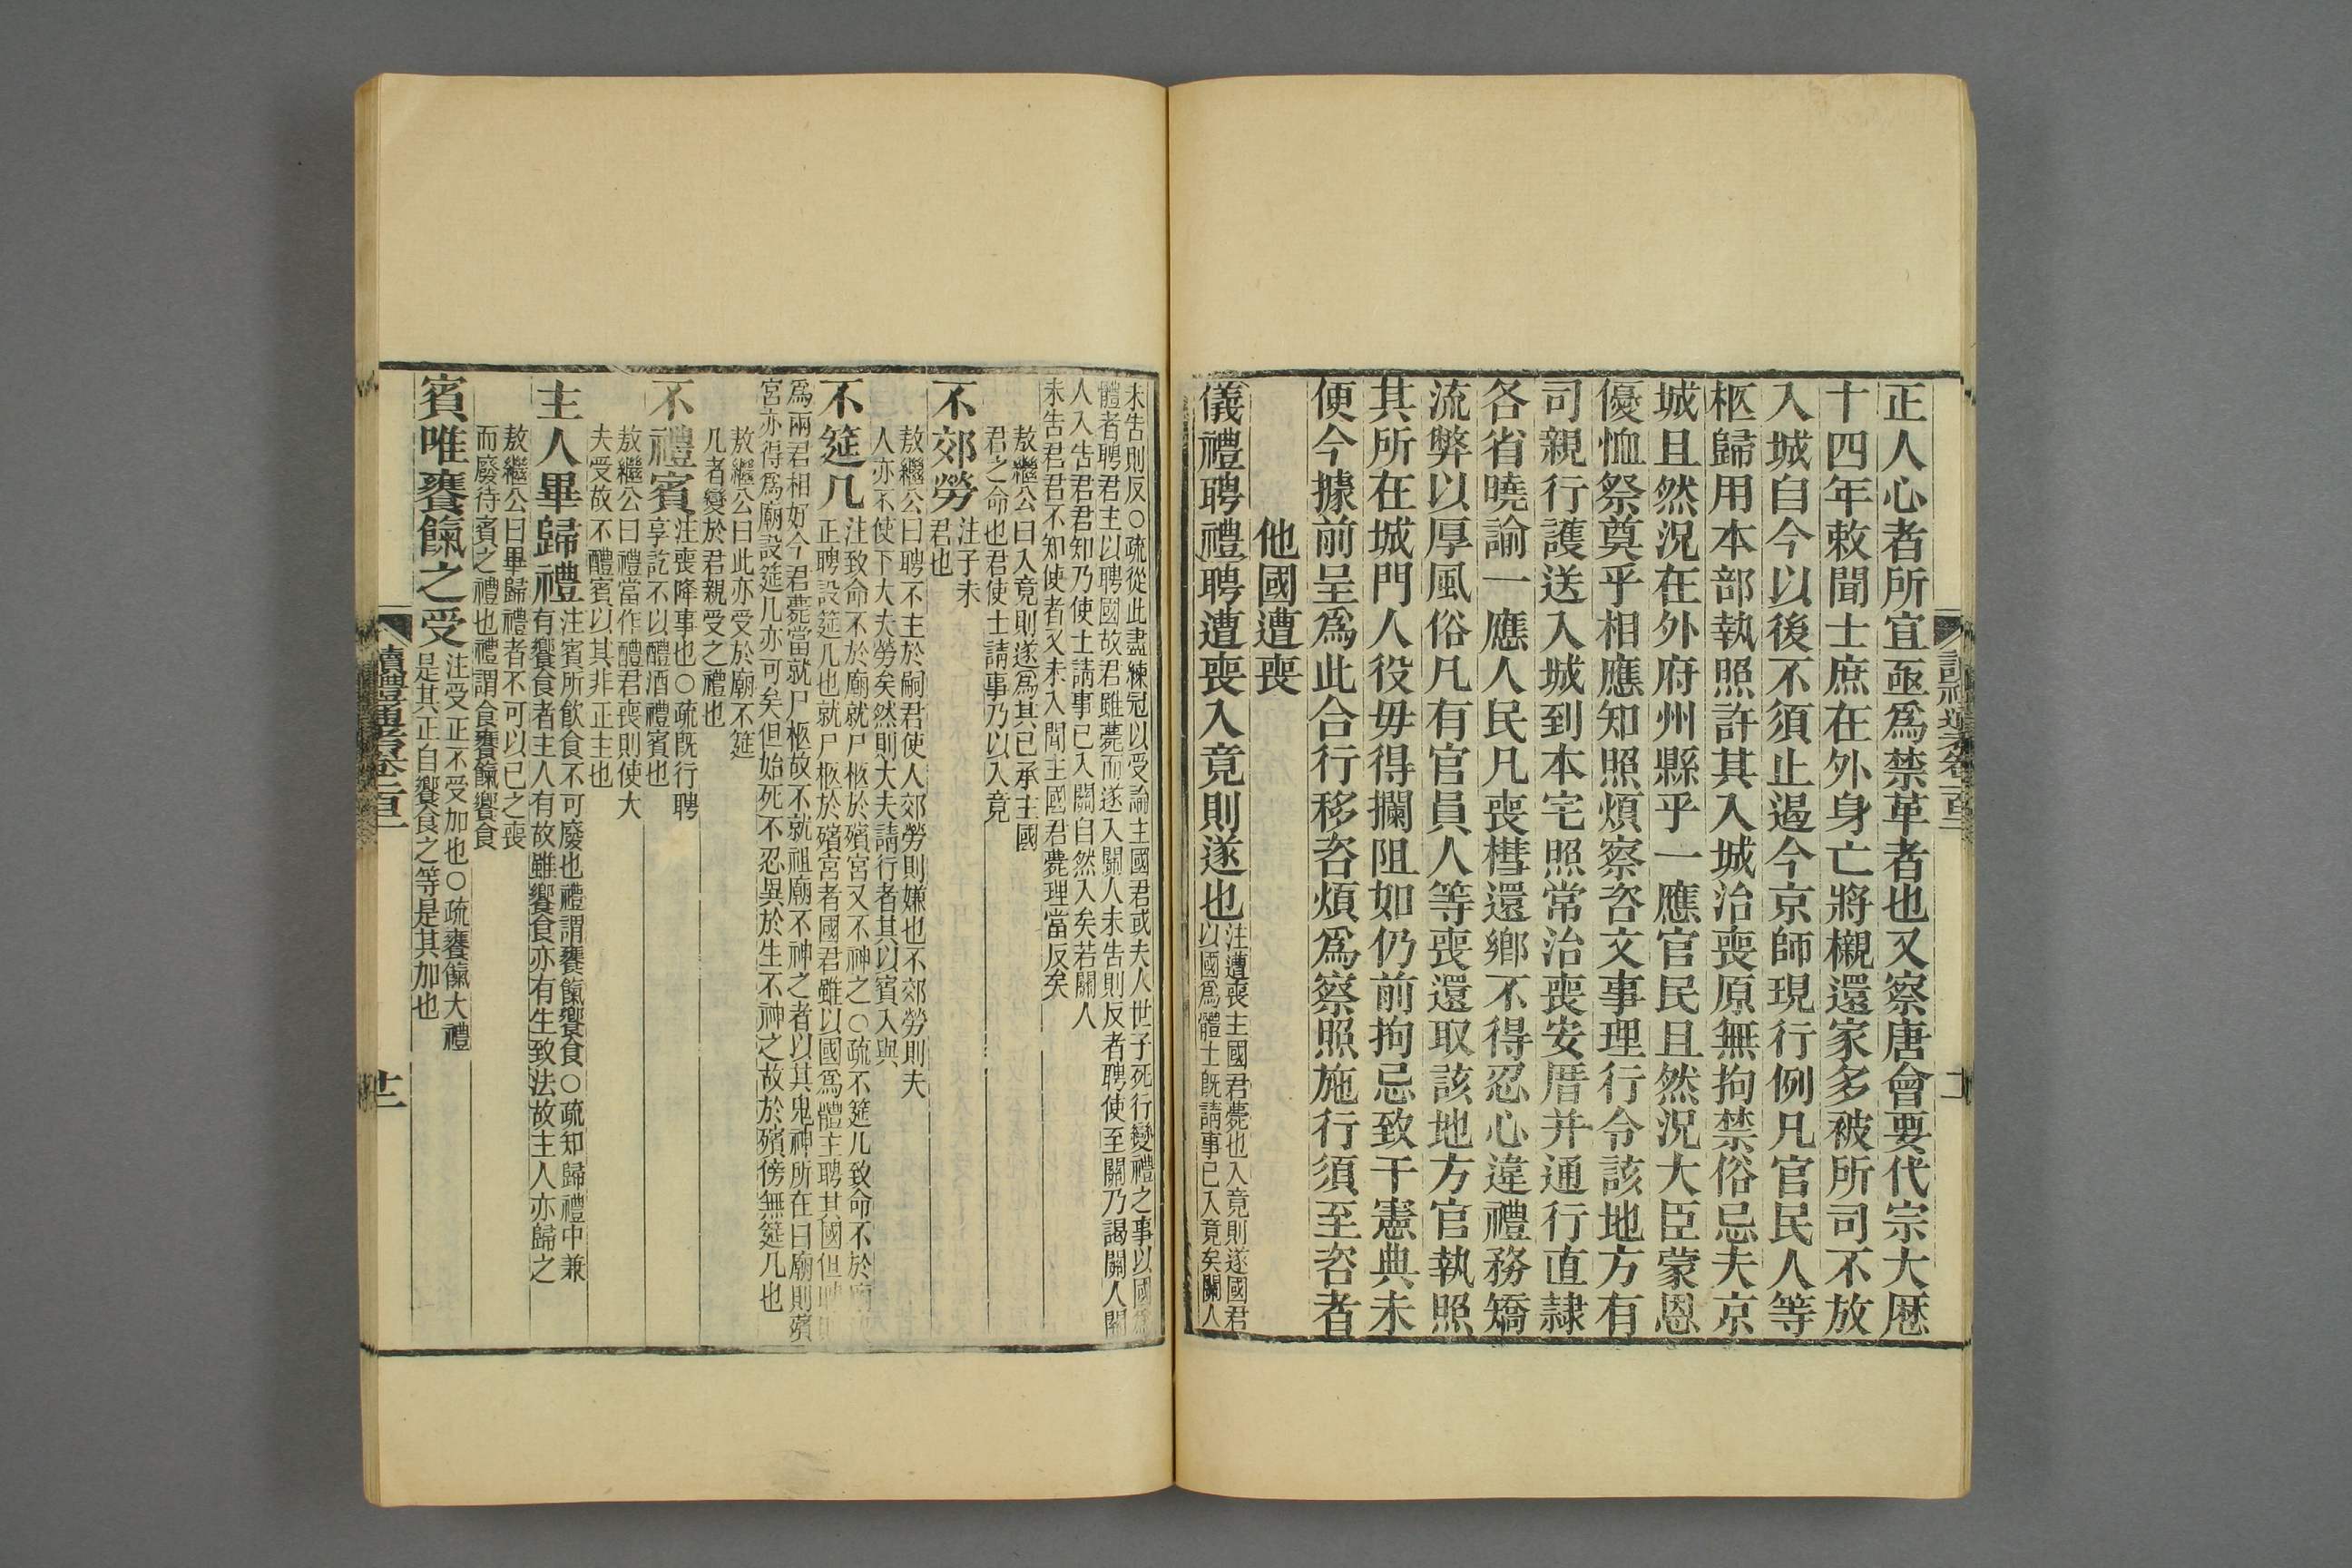 正人心者所宜亟爲禁革者也又察唐會要代宗大厯
十四年敕聞士庶在外身亡將櫬還家多被所司不放
入城自今以後不須止遏今京師現行例凡官民人等
柩歸用本部執照許其入城治喪原無拘禁俗忌夫京
城且然況在外府州縣乎一應官民且然況大臣蒙恩
優恤祭奠乎相應知照煩察咨文事理行令該地方有
司親行護送入城到本宅照常治喪安厝并通行直隷
各省曉諭一應人民凡喪槥還鄉不得忍心違禮務矯
流弊以厚風俗凡有官員人等喪還取該地方官執照
其所在城門人役毋得攔阻如仍前拘忌致干憲典未
便今據前呈爲此合行移咨煩爲察照施行須至咨者
他國遭喪
儀禮聘禮聘遭喪入竟則遂也
注遭喪主國君薨也入竟則遂國君
以國爲體士旣請事已入竟矣關人
未告則反○疏從此盡練冠以受論主國君或夫人世子死行變禮之事以國爲
體者聘君主以聘國故君雖薨而遂入關人未告則反者聘使至關乃謁關人關
人入告君君知乃使士請事已入關自然入矣若關人
未告君君不知使者又未入聞主國君薨理當反矣
敖繼公曰入竟則遂爲其已承主國
君之命也君使士請事乃以入竟
不郊勞
注子未
君也
敖繼公曰聘不主於嗣君使人郊勞則嫌也不郊勞則夫
人亦不使下大夫勞矣然則大夫請行者其以賓入與
不筵几
注致命不於廟就尸柩於殯宮又不神之○疏不筵几致命不於廟
正聘設筵几也就尸柩於殯宮者國君雖以國爲體主聘其國但聘
爲兩君相好今君薨當就尸柩故不就祖廟不神之者以其鬼神所在曰廟則殯
宮亦得爲廟設筵几亦可矣但始死不忍異於生不神之故於殯傍無筵几也
敖繼公曰此亦受於廟不筵
几者變於君親受之禮也
不禮賓
注喪降事也○疏旣行聘
享訖不以醴酒禮賓也
敖繼公曰禮當作醴君喪則使大
夫受故不醴賓以其非正主也
主人畢歸禮
注賓所飲食不可廢也禮謂饔餼饗食○疏知歸禮中兼
有饗食者主人有故雖饗食亦有生致法故主人亦歸之
敖繼公曰畢歸禮者不可以已之喪
而廢待賓之禮也禮謂食饔餼饗食
賓唯饔餼之受
注受正不受加也○疏饔餼大禮
是其正自饗食之等是其加也
讀禮通考卷一百二